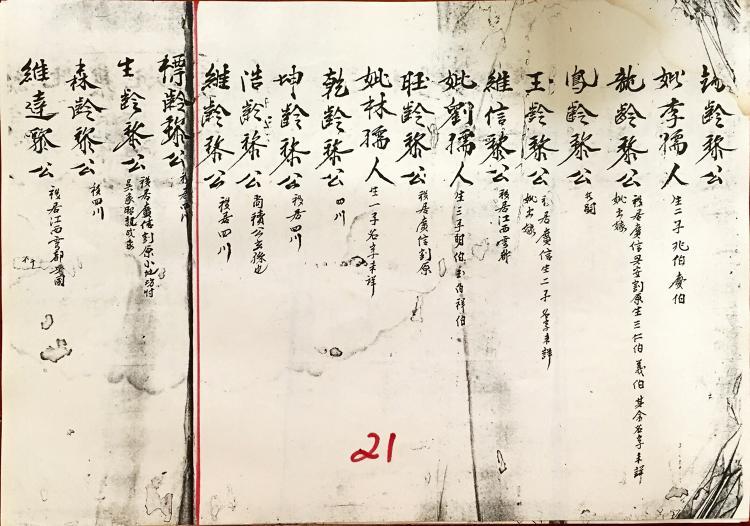 鈞齡黎公
妣李孺人 生二子 兆伯 慶伯
龍齡黎公 移居廣信興安割原生三仁伯 義伯 其余名字未詳 妣出嫁
鳳齡黎公
玉齡黎公 移居廣信生二子 名字未詳 妣出嫁
維信黎公 移居江西雩都
妣劉孺人 生三子 伯 伯 祥伯
旺齡黎公 移居廣信割原
妣林孺人 生一子名字未詳
乾齡黎公 四川
坤齡黎公 移居四川
浩齡黎公 公玄孫也
維齡黎公 移居四川
標齡黎公 移居四川
生齡黎公 移居廣信割原小地坊村
森齡黎公 移四川
維達黎公 移居江西雩都興國
21